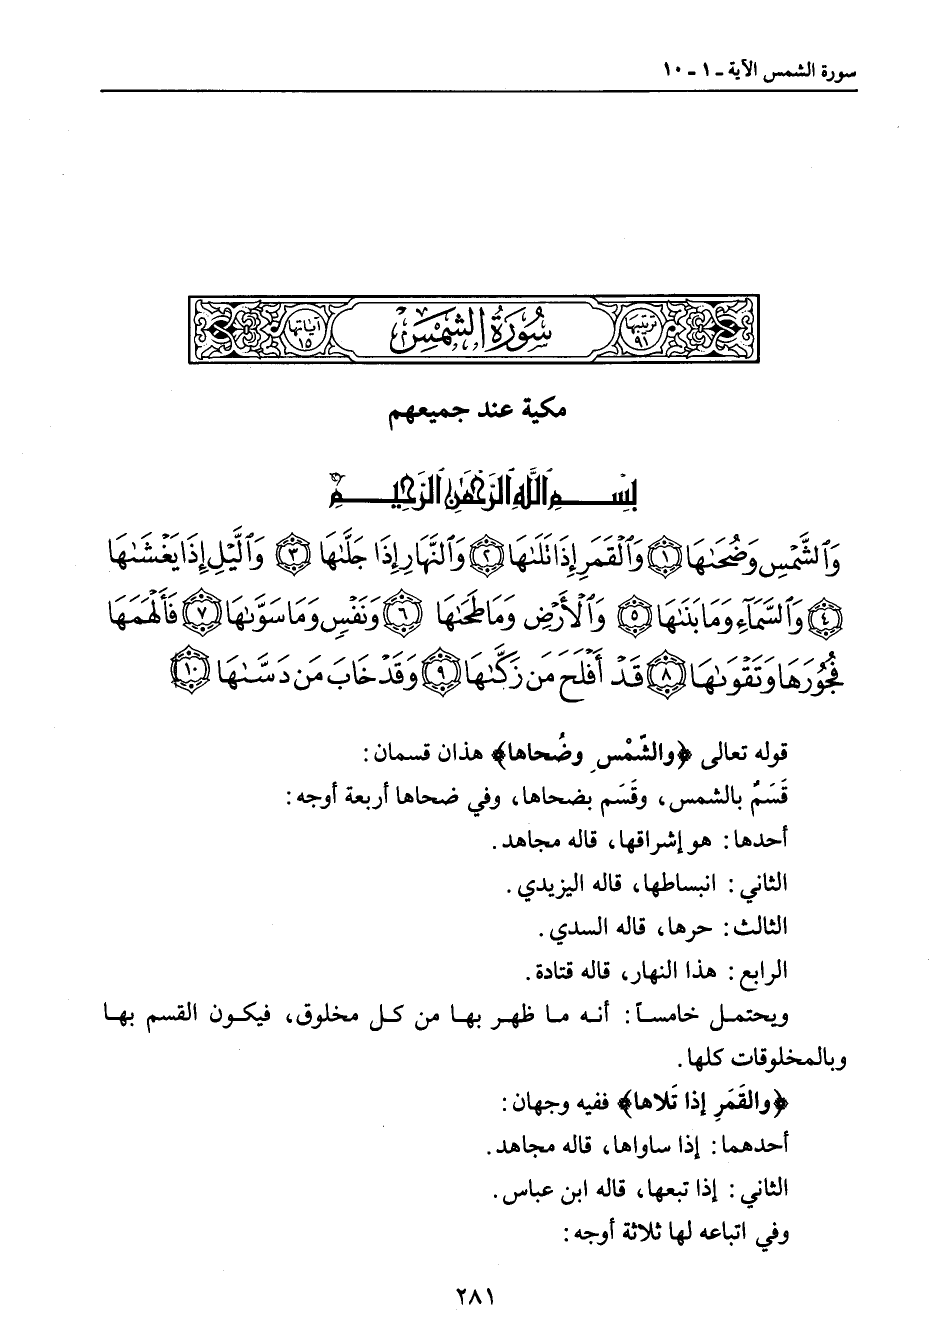 سورة الشمس الآية ـ ١ ـ ١٠
ترتيبها ٩١ سُورَةُ الشَّمْسِ آياتها ١٥
مكية عند جميعهم
بِسْمِ ٱللَّهِ ٱلرَّحْمَٰنِ ٱلرَّحِيمِ
وَٱلشَّمْسِ وَضُحَىٰهَا ١ وَٱلْقَمَرِ إِذَا تَلَىٰهَا ٢ وَٱلنَّهَارِ إِذَا جَلَّىٰهَا ٣ وَٱلَّيْلِ إِذَا يَغْشَىٰهَا
٤ وَٱلسَّمَآءِ وَمَا بَنَىٰهَا ٥ وَٱلْأَرْضِ وَمَا طَحَىٰهَا ٦ وَنَفْسٍ وَمَا سَوَّىٰهَا ٧ فَأَلْهَمَهَا
فُجُورَهَا وَتَقْوَىٰهَا ٨ قَدْ أَفْلَحَ مَن زَكَّىٰهَا ٩ وَقَدْ خَابَ مَن دَسَّىٰهَا ١٠
قوله تعالى ﴿والشّمْسِ وضُحاها﴾ هذان قسمان:
قَسَمٌ بالشمس، وقَسَم بضحاها، وفي ضحاها أربعة أوجه:
أحدها: هو إشراقها، قاله مجاهد.
الثاني: انبساطها، قاله اليزيدي.
الثالث: حرها، قاله السدي.
الرابع: هذا النهار، قاله قتادة.
ويحتمل خامساً: أنه ما ظهر بها من كل مخلوق، فيكون القسم بها
وبالمخلوقات كلها.
﴿والقَمَرِ إذا تَلاها﴾ ففيه وجهان:
أحدهما: إذا ساواها، قاله مجاهد.
الثاني: إذا تبعها، قاله ابن عباس.
وفي اتباعه لها ثلاثة أوجه:
٢٨١